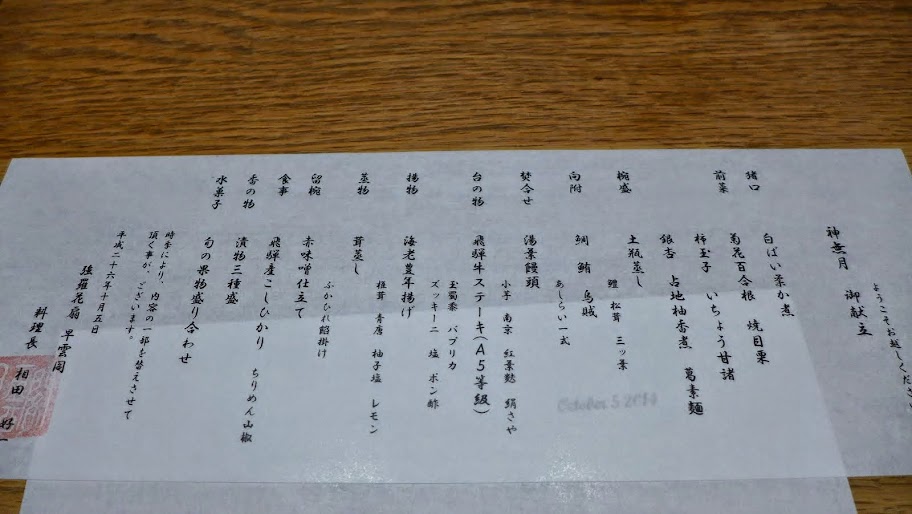 ようこそお越しください
神無月　御献立
猪口　白ばい柔か煮
前菜　菊花百合根　焼目栗
柿玉子　いちょう甘諸
銀杏　占地柚香煮　葛素麺
椀盛　土瓶蒸し
鱧　松茸　三ッ葉
向附　鯛　鮪　烏賊
あしらい一式
焚合せ　湯葉饅頭
小芋　南京　紅葉麩　絹さや
台の物　飛騨牛ステーキ(A5等級)
玉蜀黍　パプリカ
ズッキーニ　塩　ポン酢
揚物　海老豊年揚げ
椎茸　青唐　柚子塩　レモン
蒸物　茸蒸し
ふかひれ餡掛け
留椀　赤味噌仕立て
食事　飛騨産こしひかり　ちりめん山椒
香の物　漬物三種盛
水菓子　旬の果物盛り合わせ
時季により、内容の一部を替えさせて
頂く事が、ございます。
平成二十六年十月五日
強羅花扇　早雲閣
料理長　相田　好一
October 5 2014